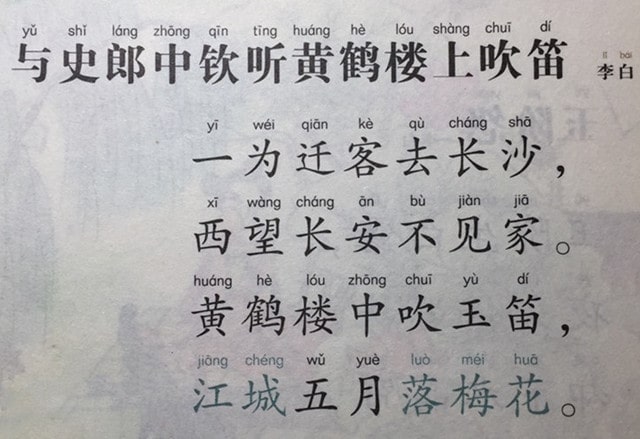 yǔ shǐ láng zhōng qīn tīng huáng hè lóu shàng chuī dí lǐ bái
与史郎中钦听黄鹤楼上吹笛 李白
yī wéi qiān kè qù cháng shā
一为迁客去长沙，
xī wàng cháng ān bù jiàn jiā
西望长安不见家。
huáng hè lóu zhōng chuī yù dí
黄鹤楼中吹玉笛，
jiāng chéng wǔ yuè luò méi huā
江城五月落梅花。